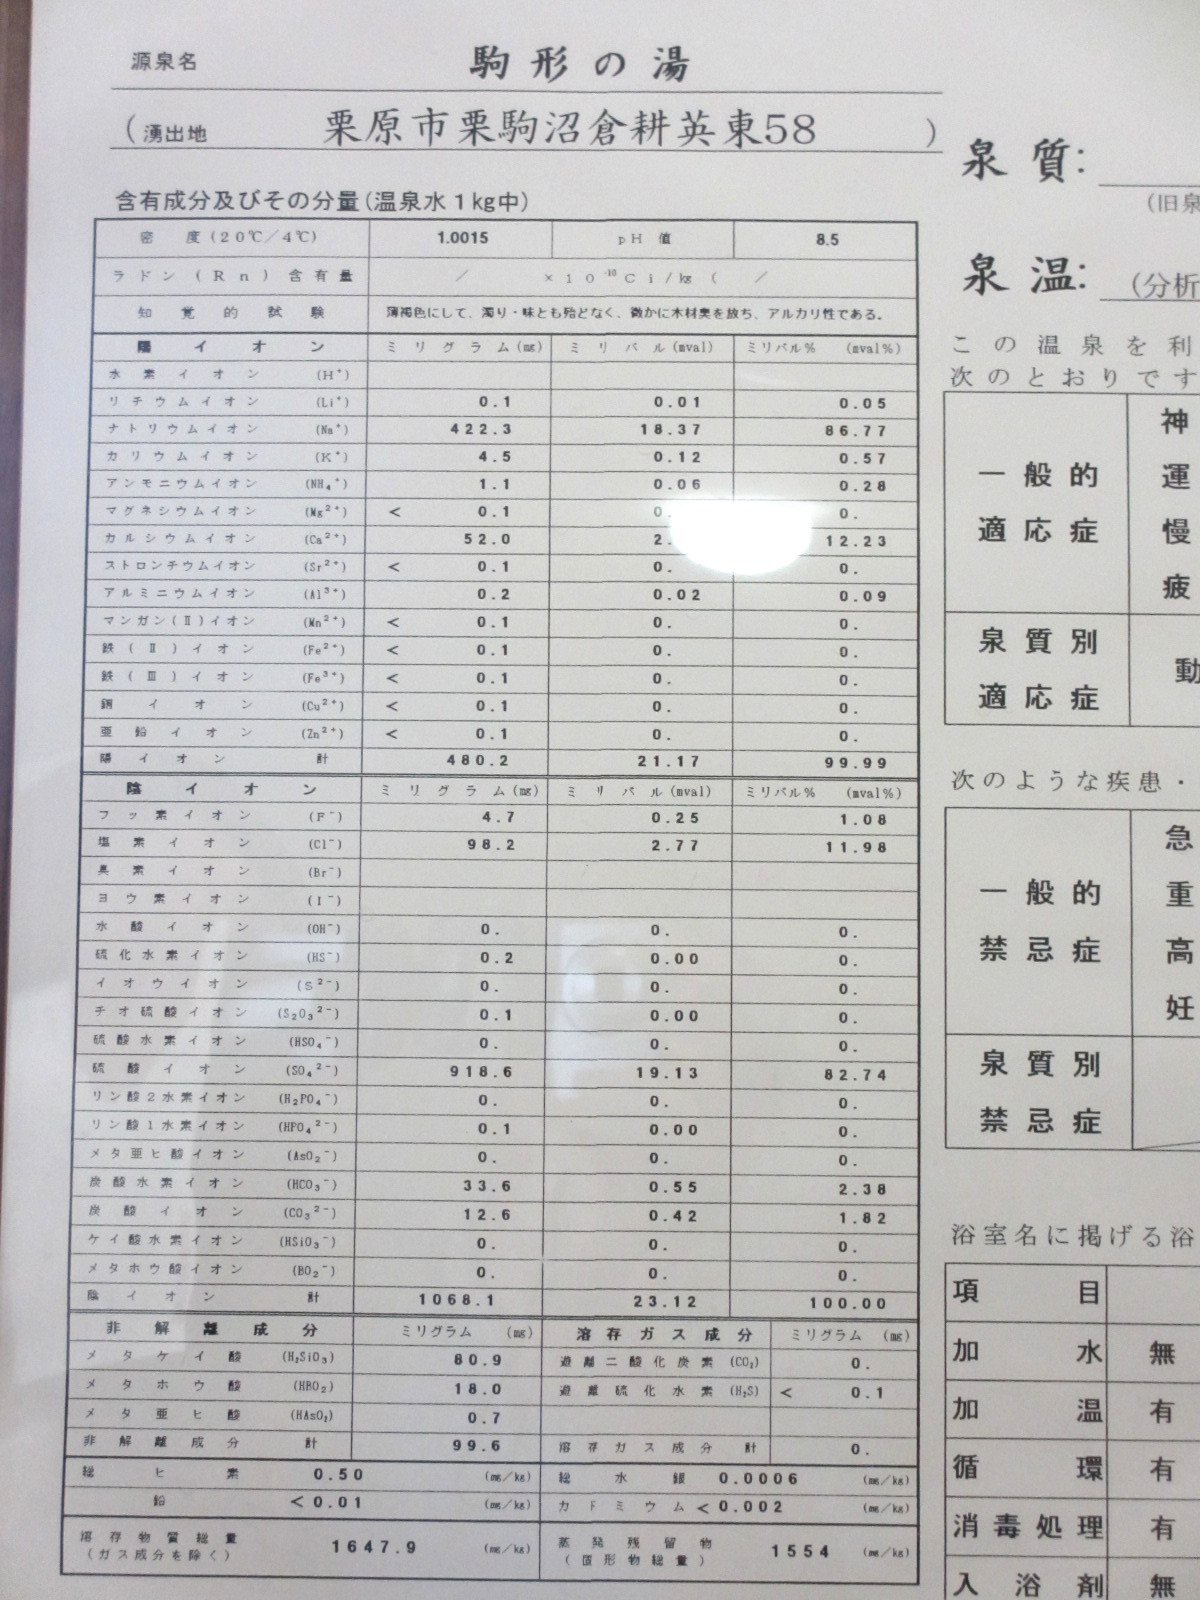 源泉名 駒形の湯
(湧出地 栗原市栗駒沼倉耕英東58 )
含有成分及びその分量(温泉水1kg中)
密度(20℃/4℃) 1.0015 pH値 8.5
ラドン(Rn)含有量 / ×10⁻¹⁰Ci/kg ( /
知覚的試験 薄褐色にして、濁り・味とも殆どなく、微かに木材臭を放ち、アルカリ性である。
陽イオン ミリグラム(mg) ミリバル(mval) ミリバル% (mval%)
水素イオン (H⁺)
リチウムイオン (Li⁺) 0.1 0.01 0.05
ナトリウムイオン (Na⁺) 422.3 18.37 86.77
カリウムイオン (K⁺) 4.5 0.12 0.57
アンモニウムイオン (NH₄⁺) 1.1 0.06 0.28
マグネシウムイオン (Mg²⁺) < 0.1 0. 0.
カルシウムイオン (Ca²⁺) 52.0 2. 12.23
ストロンチウムイオン (Sr²⁺) < 0.1 0. 0.
アルミニウムイオン (Al³⁺) 0.2 0.02 0.09
マンガン(Ⅱ)イオン (Mn²⁺) < 0.1 0. 0.
鉄(Ⅱ)イオン (Fe²⁺) < 0.1 0. 0.
鉄(Ⅲ)イオン (Fe³⁺) < 0.1 0. 0.
銅イオン (Cu²⁺) < 0.1 0. 0.
亜鉛イオン (Zn²⁺) < 0.1 0. 0.
陽イオン計 480.2 21.17 99.99
陰イオン ミリグラム(mg) ミリバル(mval) ミリバル% (mval%)
フッ素イオン (F⁻) 4.7 0.25 1.08
塩素イオン (Cl⁻) 98.2 2.77 11.98
臭素イオン (Br⁻)
ヨウ素イオン (I⁻)
水酸イオン (OH⁻) 0. 0. 0.
硫化水素イオン (HS⁻) 0.2 0.00 0.
イオウイオン (S²⁻) 0. 0. 0.
チオ硫酸イオン (S₂O₃²⁻) 0.1 0.00 0.
硫酸水素イオン (HSO₄⁻) 0. 0. 0.
硫酸イオン (SO₄²⁻) 918.6 19.13 82.74
リン酸2水素イオン (H₂PO₄⁻) 0. 0. 0.
リン酸1水素イオン (HPO₄²⁻) 0.1 0.00 0.
メタ亜ヒ酸イオン (AsO₂⁻) 0. 0. 0.
炭酸水素イオン (HCO₃⁻) 33.6 0.55 2.38
炭酸イオン (CO₃²⁻) 12.6 0.42 1.82
ケイ酸水素イオン (HSiO₃⁻) 0. 0. 0.
メタホウ酸イオン (BO₂⁻) 0. 0. 0.
陰イオン計 1068.1 23.12 100.00
非解離成分 ミリグラム (mg) 溶存ガス成分 ミリグラム (mg)
メタケイ酸 (H₂SiO₃) 80.9 遊離二酸化炭素 (CO₂) 0.
メタホウ酸 (HBO₂) 18.0 遊離硫化水素 (H₂S) < 0.1
メタ亜ヒ酸 (HAsO₂) 0.7
非解離成分計 99.6 溶存ガス成分計 0.
総ヒ素 0.50 (mg/kg) 総水銀 0.0006 (mg/kg)
鉛 <0.01 (mg/kg) カドミウム <0.002 (mg/kg)
溶存物質総量 1647.9 (mg/kg) 蒸発残留物 1554 (mg/kg)
(ガス成分を除く) (固形物総量)
泉質:
(旧泉
泉温: (分析
この温泉を利
次のとおりです
一般的
適応症
神
運
慢
疲
泉質別
適応症
動
次のような疾患・
一般的
禁忌症
急
重
高
妊
泉質別
禁忌症
浴室名に掲げる浴
項目
加水 無
加温 有
循環 有
消毒処理 有
入浴剤 無